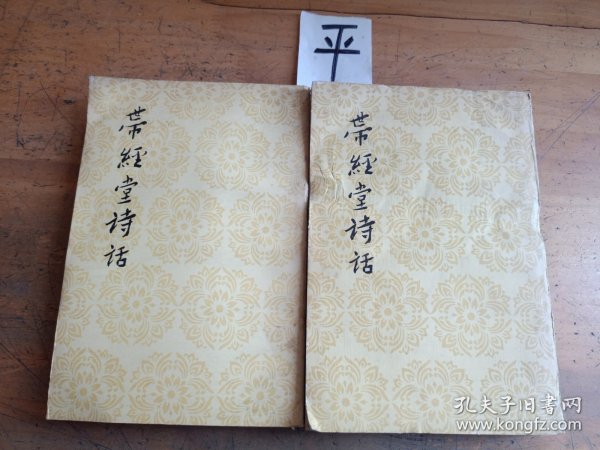 平
帶經堂诗话
帶經堂诗话
孔夫子旧书网
www.kongfz.com